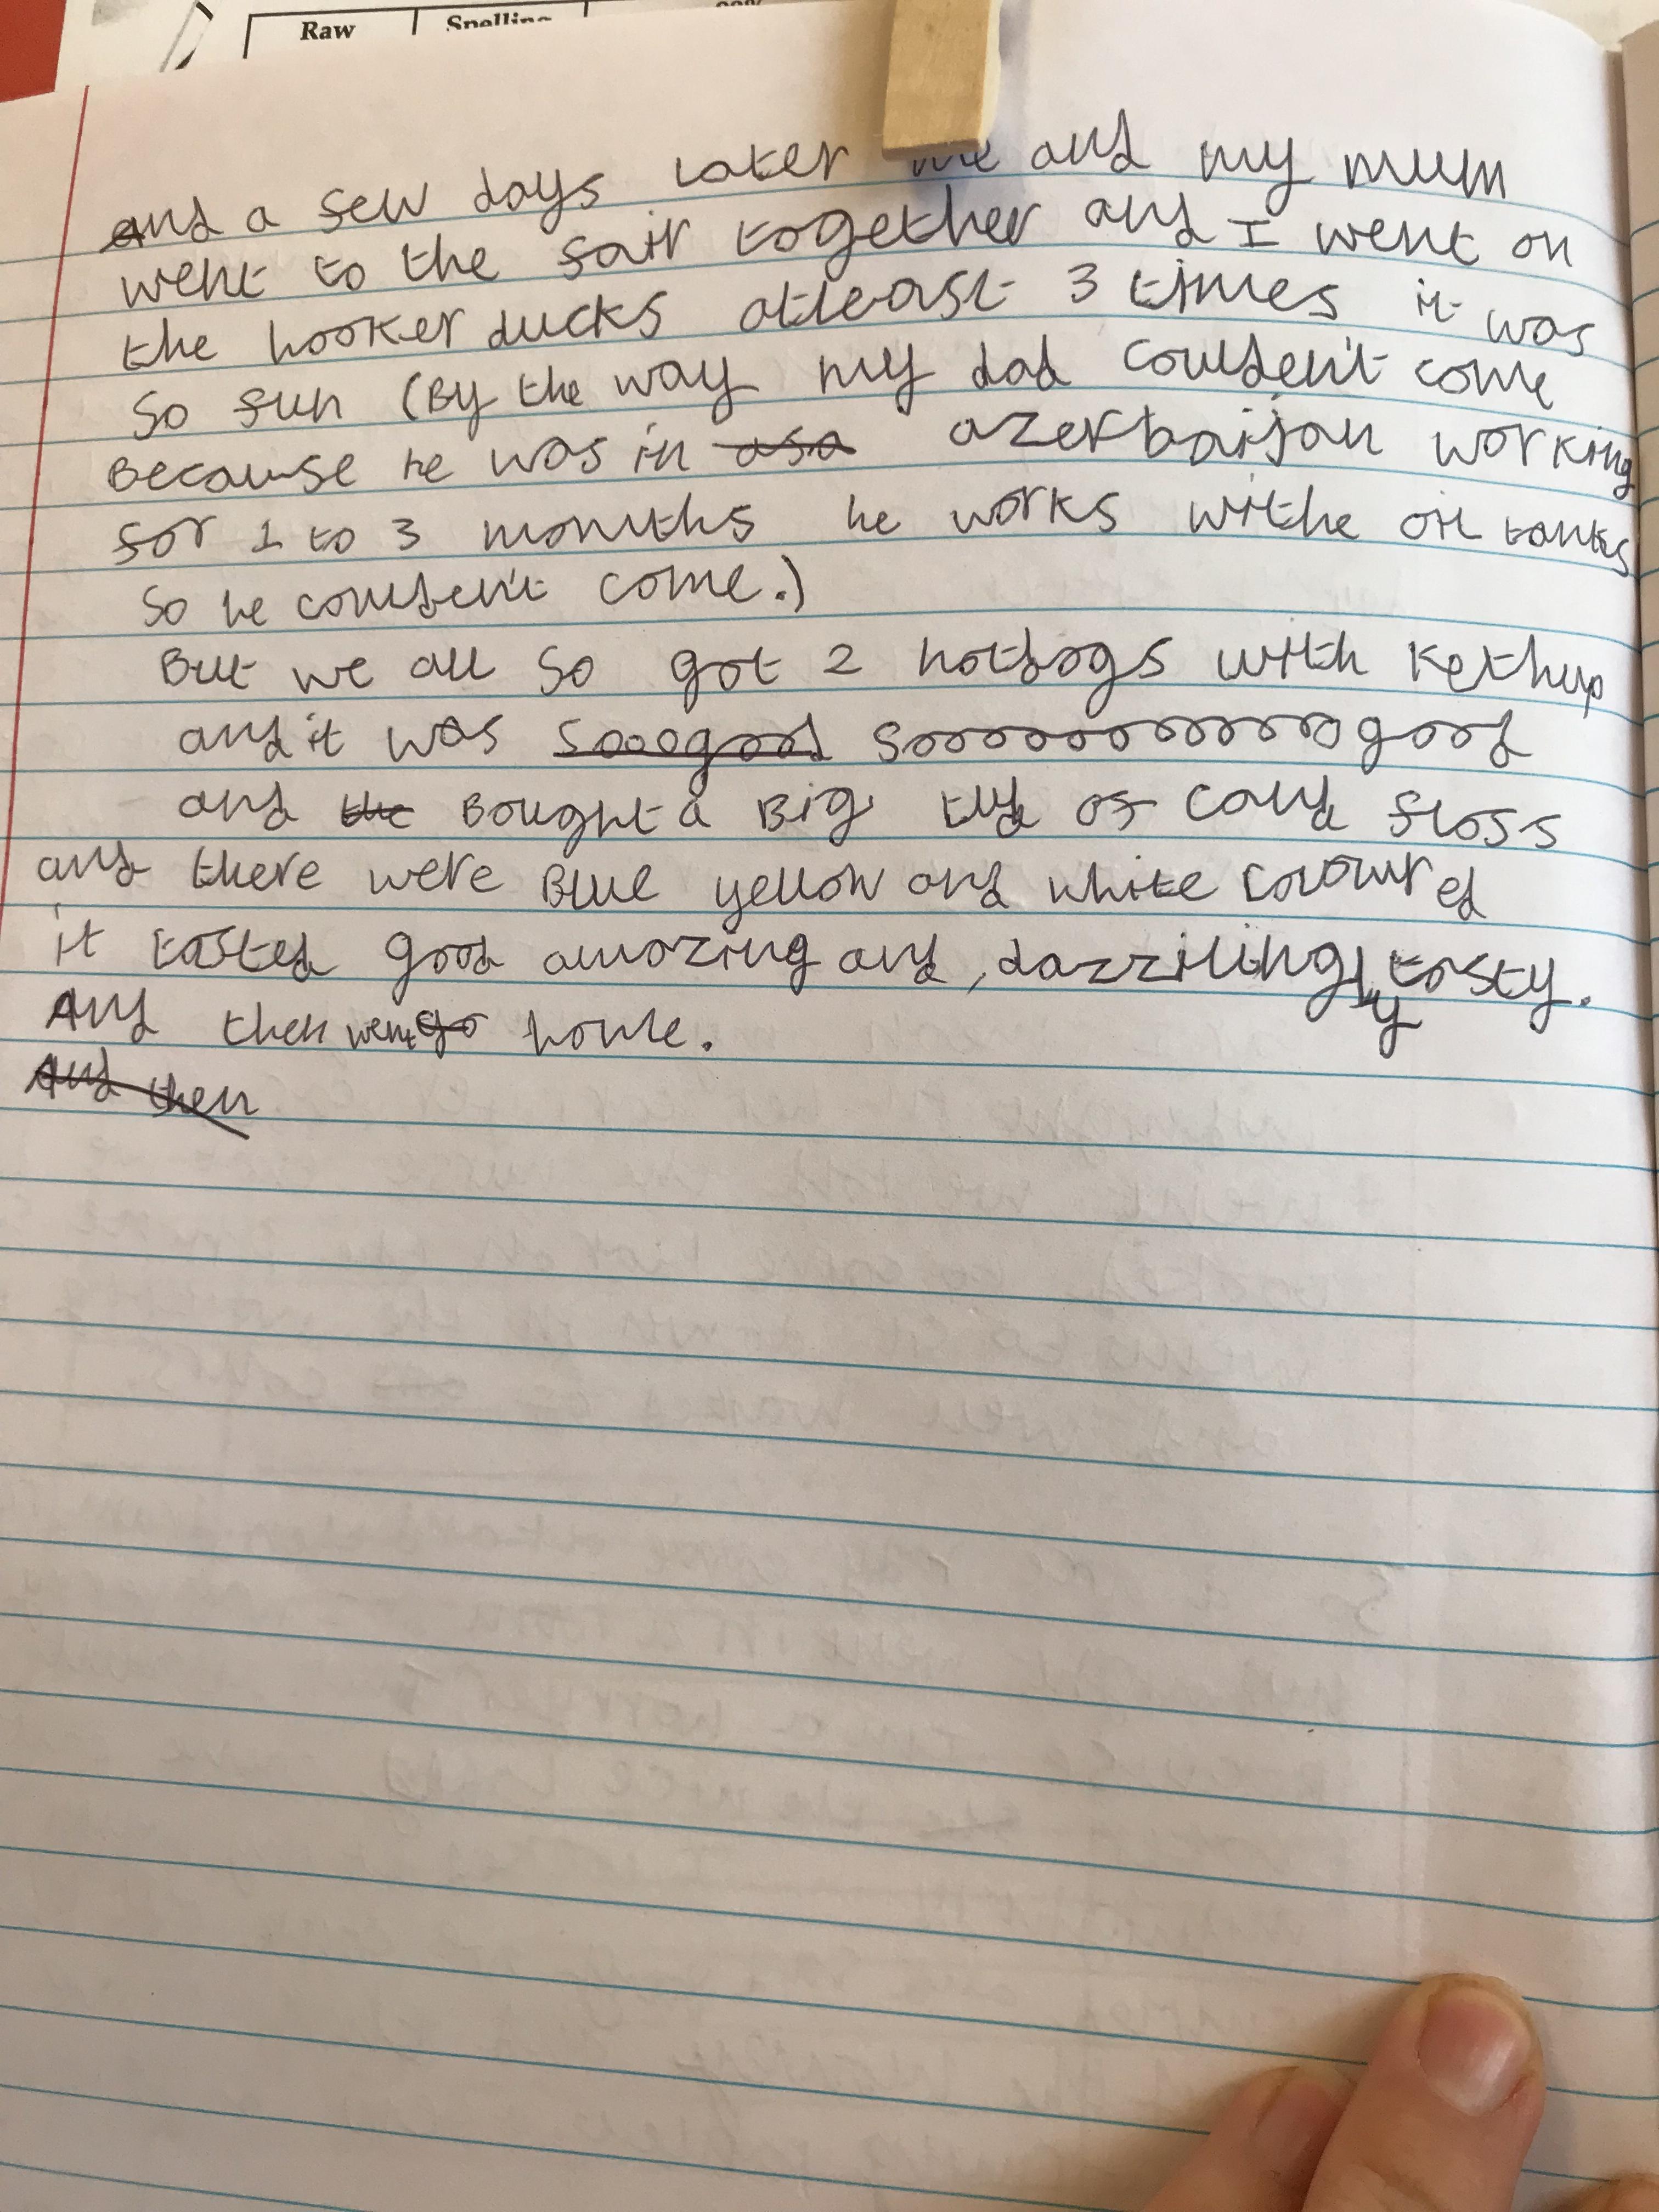 Raw Spelling
And a few days later me and my mum
went to the fair together and I went on
the hooker ducks atleast 3 times it was
So fun (By the way my dad couldent come
Because he was in asa azerbaijan working
for 1 to 3 monuths he works withe oil tanks
So he couldent come.)
But we all so got 2 hotdogs with kethup
and it was Sooogood Soooooooooooogood
and the Bought a Big of cand floss
and there were Blue yellow and white coloured
it tasted good amazing and, dazziling ly tasty.
And then went go home.
And then